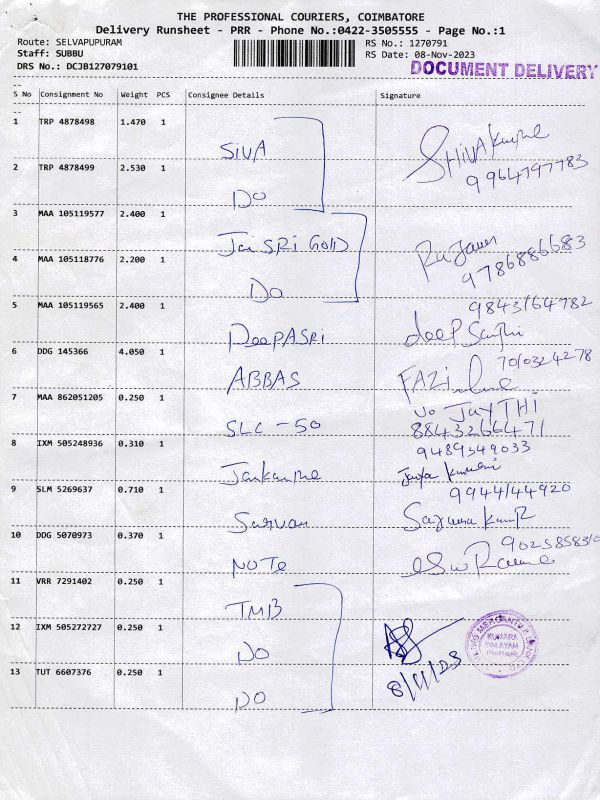 THE PROFESSIONAL COURIERS, COIMBATORE
Delivery Runsheet - PRR - Phone No.:0422-3505555 - Page No.:1
Route: SELVAPUPURAM RS No.: 1270791
Staff: SUBBU RS Date: 08-Nov-2023
DRS No.: DCJB127079101 DOCUMENT DELIVERY
S No Consignment No Weight PCS Consignee Details Signature
1 TRP 4878498 1.470 1 SIVA SHIVAkumar
2 TRP 4878499 2.530 1 DO 9964797783
3 MAA 105119577 2.400 1 Jai SRI GOLD
4 MAA 105118776 2.200 1 DO 9786886683
5 MAA 105119565 2.400 1 DeePASRi 9843164782
6 DDG 145366 4.050 1 ABBAS
7 MAA 862051205 0.250 1 SLC - 50 JAYTHI
8 IXM 505248936 0.310 1 9489349033
9 SLM 5269637 0.710 1 Sarvan 9944144920
10 DDG 5070973 0.370 1 NOTe
11 VRR 7291402 0.250 1 TMB
12 IXM 505272727 0.250 1 DO
13 TUT 6607376 0.250 1 DO 8/11/23